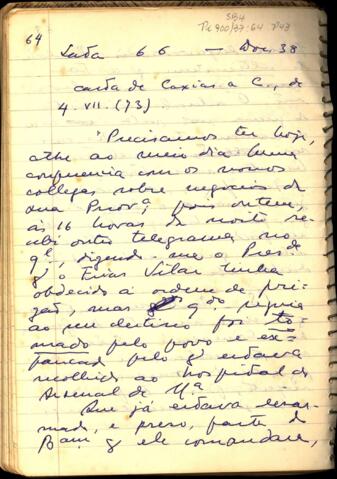 64
SB4
Pi 900/37:64 P43
Lata 66 — Doc. 38
carta de Caxias a C., de
4. VII. (73)
"Precisamos ter hoje,
athe ao meio dia huma
conferencia com os nossos
collegas sobre negocios de
sua Provª; pois ontem,
as 16 horas da noite re-
cebi outro telegrama no
ql, dizendo-me o Presde
q o Frias Vilar tinha
obdecido á ordem de pri-
zão, mas qdo seguia
ao seu destino foi to-
mado pelo povo e es-
pancado pelo q estava
recolhido ao hospital do
Arsenal de Mª.
Que já estava desar-
mado, e preso, parte do
Bam q ele comandava,